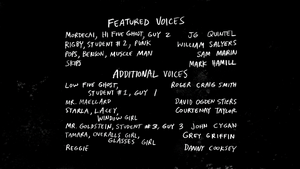 FEATURED VOICES
MORDECAI, HI FIVE GHOST, GUY 2 JG QUINTEL
RIGBY, STUDENT #2, PUNK WILLIAM SALYERS
POPS, BENSON, MUSCLE MAN SAM MARIN
SKIPS MARK HAMILL
ADDITIONAL VOICES
LOW FIVE GHOST, ROGER CRAIG SMITH
STUDENT #1, GUY 1
MR. MAELLARD DAVID OGDEN STIERS
STARLA, LACEY, COURTENAY TAYLOR
WINDOW GIRL
MR. GOLDSTEIN, STUDENT #3, GUY 3 JOHN CYGAN
TAMARA, OVERALLS GIRL, GREY GRIFFIN
GLASSES GIRL
REGGIE DANNY COOKSEY